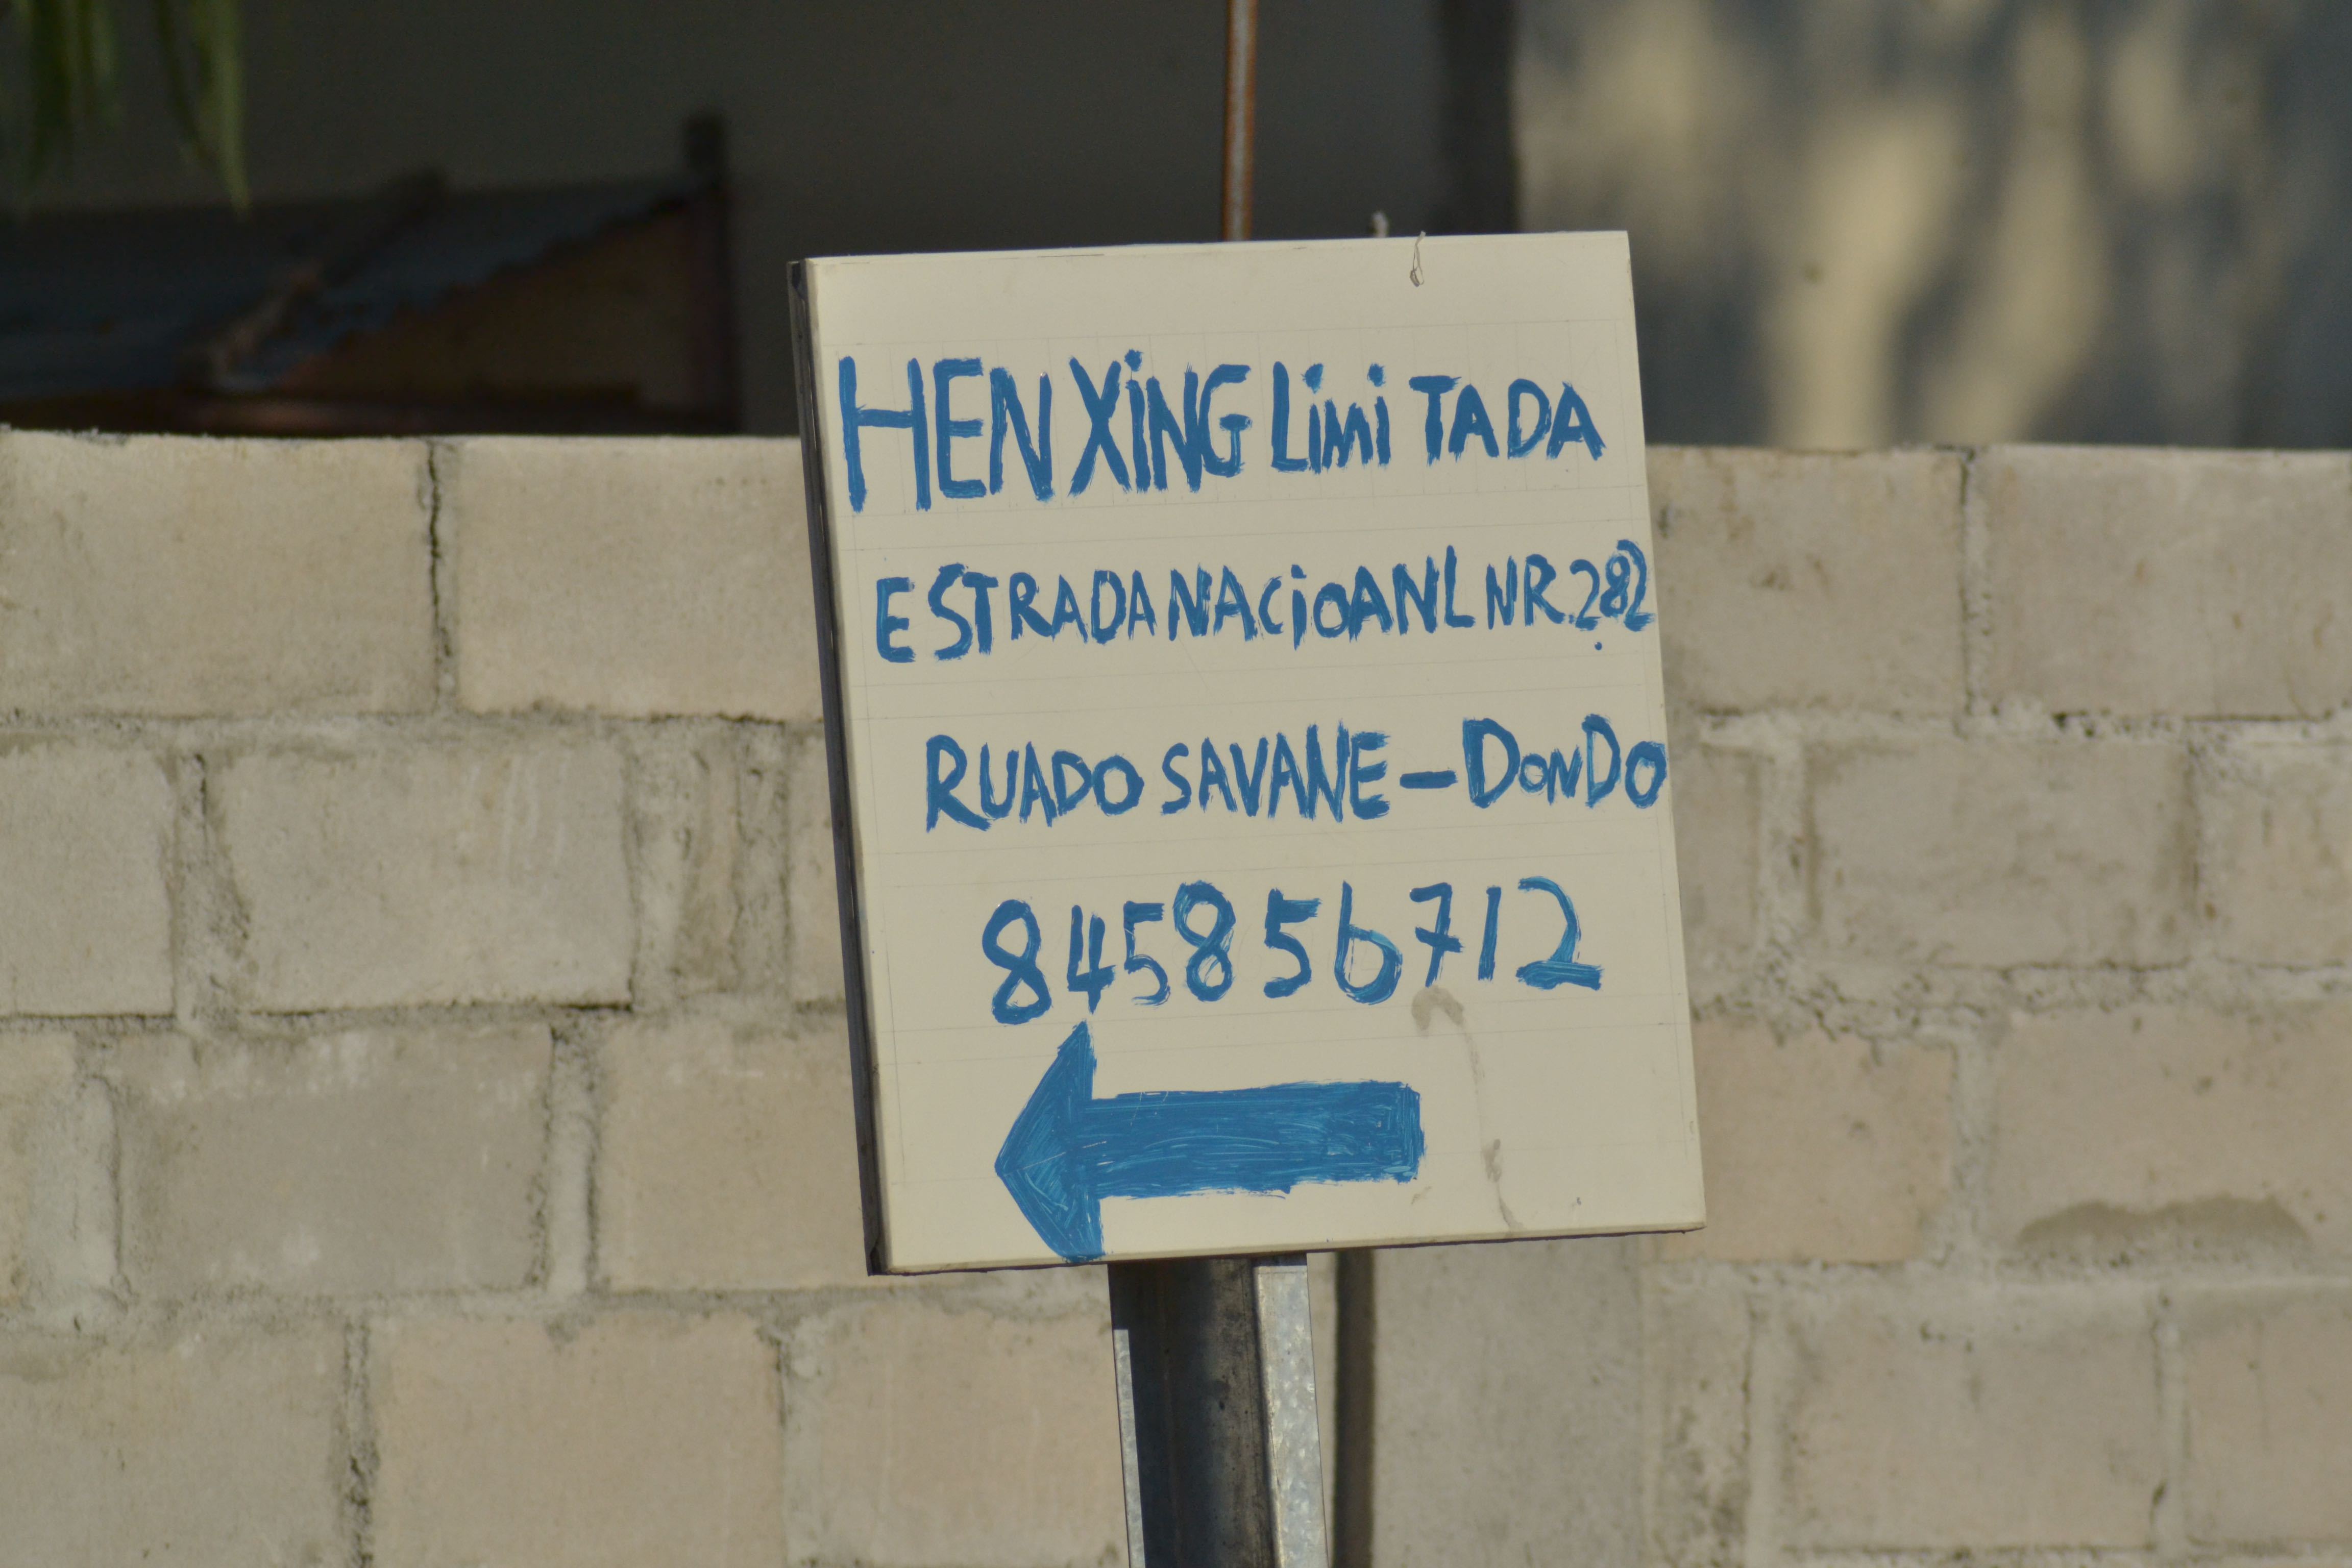 HEN XiNG LimiTADA
ESTRADA NACiOANL NR.282
RUADO SAVANE-DONDO
845856712